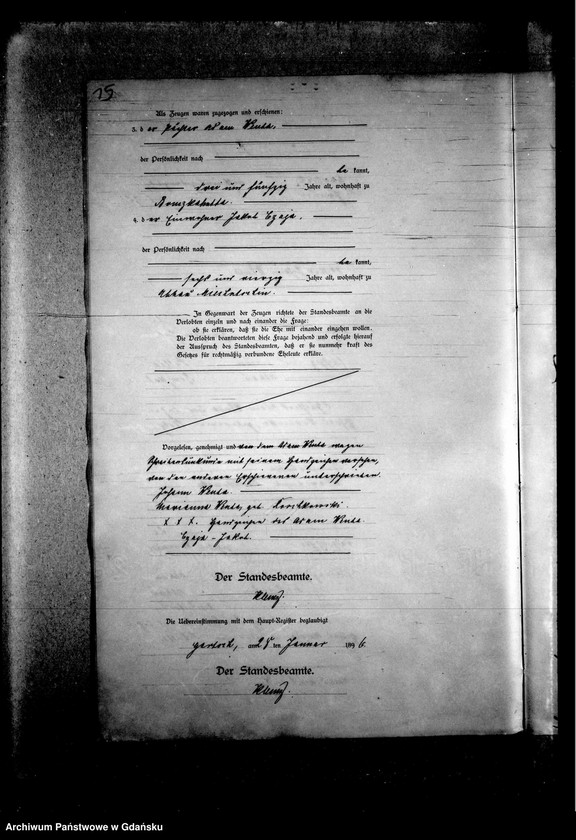 15
Als Zeugen waren zugezogen und erschienen:
3. der Adam Venta,
der Persönlichkeit nach
be kannt,
drei und fünfzig Jahre alt, wohnhaft zu
4. der Einwohner Jakob Czaja.
der Persönlichkeit nach
be kannt,
sechs und vierzig Jahre alt, wohnhaft zu
In Gegenwart der Zeugen richtete der Standesbeamte an die
Verlobten einzeln und nach einander die Frage:
ob sie erklären, daß sie die Ehe mit einander eingehen wollen.
Die Verlobten beantworteten diese Frage bejahend und erfolgte hierauf
der Ausspruch des Standesbeamten, daß er sie nunmehr kraft des
Gesetzes für rechtmäßig verbundene Eheleute erkläre.
Vorgelesen, genehmigt und von dem Adam Venta wegen
mit seinem Handzeichen versehen,
von den anderen Erschienenen unterschrieben.
Johann Venta
Marianna Venta, geb.
X X X. Handzeichen des Adam Venta
Czaja - Jakob.
Der Standesbeamte.
Die Uebereinstimmung mit dem Haupt-Register beglaubigt
am 28 ten Januar 1896
Der Standesbeamte.
Archiwum Państwowe w Gdańsku